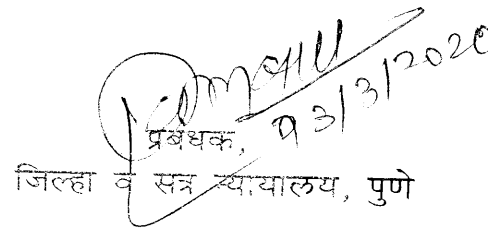 १३/३/२०२०
प्रबंधक,
जिल्हा व सत्र न्यायालय, पुणे